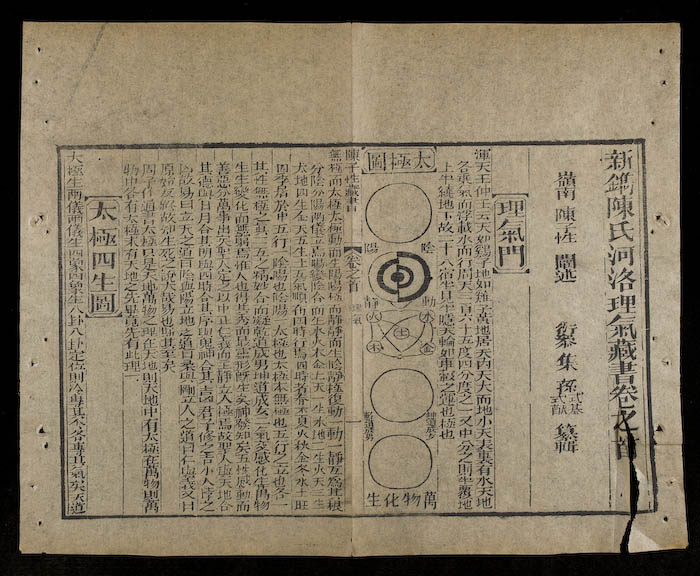 新鐫陳氏河洛理氣藏書卷之首
嶺南 陳子性 闡述
集孫 式基 纂輯
理氣門
渾天王仲王云天如鷄子地如雞中黃地居天內天大而地小天表裏有水天地
各乘氣而浮載水而行周天三百六十五度四分度之一又中分之則半覆地
上半繞地下故二十八宿半見半隱天轉如車轂之運也極也
太極圖
陰 陽
動 靜
火 水 土 木 金
坤道成女 乾道成男
萬物化生
陳子性藏書 卷之首 理氣
無極而太極太極動而生陽動極而靜靜而生陰靜極復動一動一靜互為其根
分陰分陽兩儀立焉陽變陰合而生水火木金土天一生水地二生火天三生
木地四生金天五生土五氣順布四時行焉四時春木夏火秋金冬水土旺
四季居於中五行一陰陽也陰陽一太極也太極本無極也五行之生也各一
其性無極之真二五之精妙合而凝乾道成男坤道成女二氣交感化生萬物
生生變化而無窮焉惟人也得其秀而最靈形既生矣神發知矣五性感動而
善惡分萬事出矣聖人定之以中正仁義而主靜立人極焉故聖人與天地合
其德與日月合其明與四時合其序與鬼神合其吉凶君子修之吉小人悖之
凶故易曰立天之道曰陰與陽立地之道曰柔與剛立人之道曰仁與義又曰
原始反終故知生死之說大哉易也斯其至矣
周子作通書太極曰是天地萬物之理在天地則天地中有太極在萬物則萬
物中各有太極未有天地之先畢竟先有此理
太極四生圖
太極生兩儀兩儀生四象四象生八卦八卦定位則